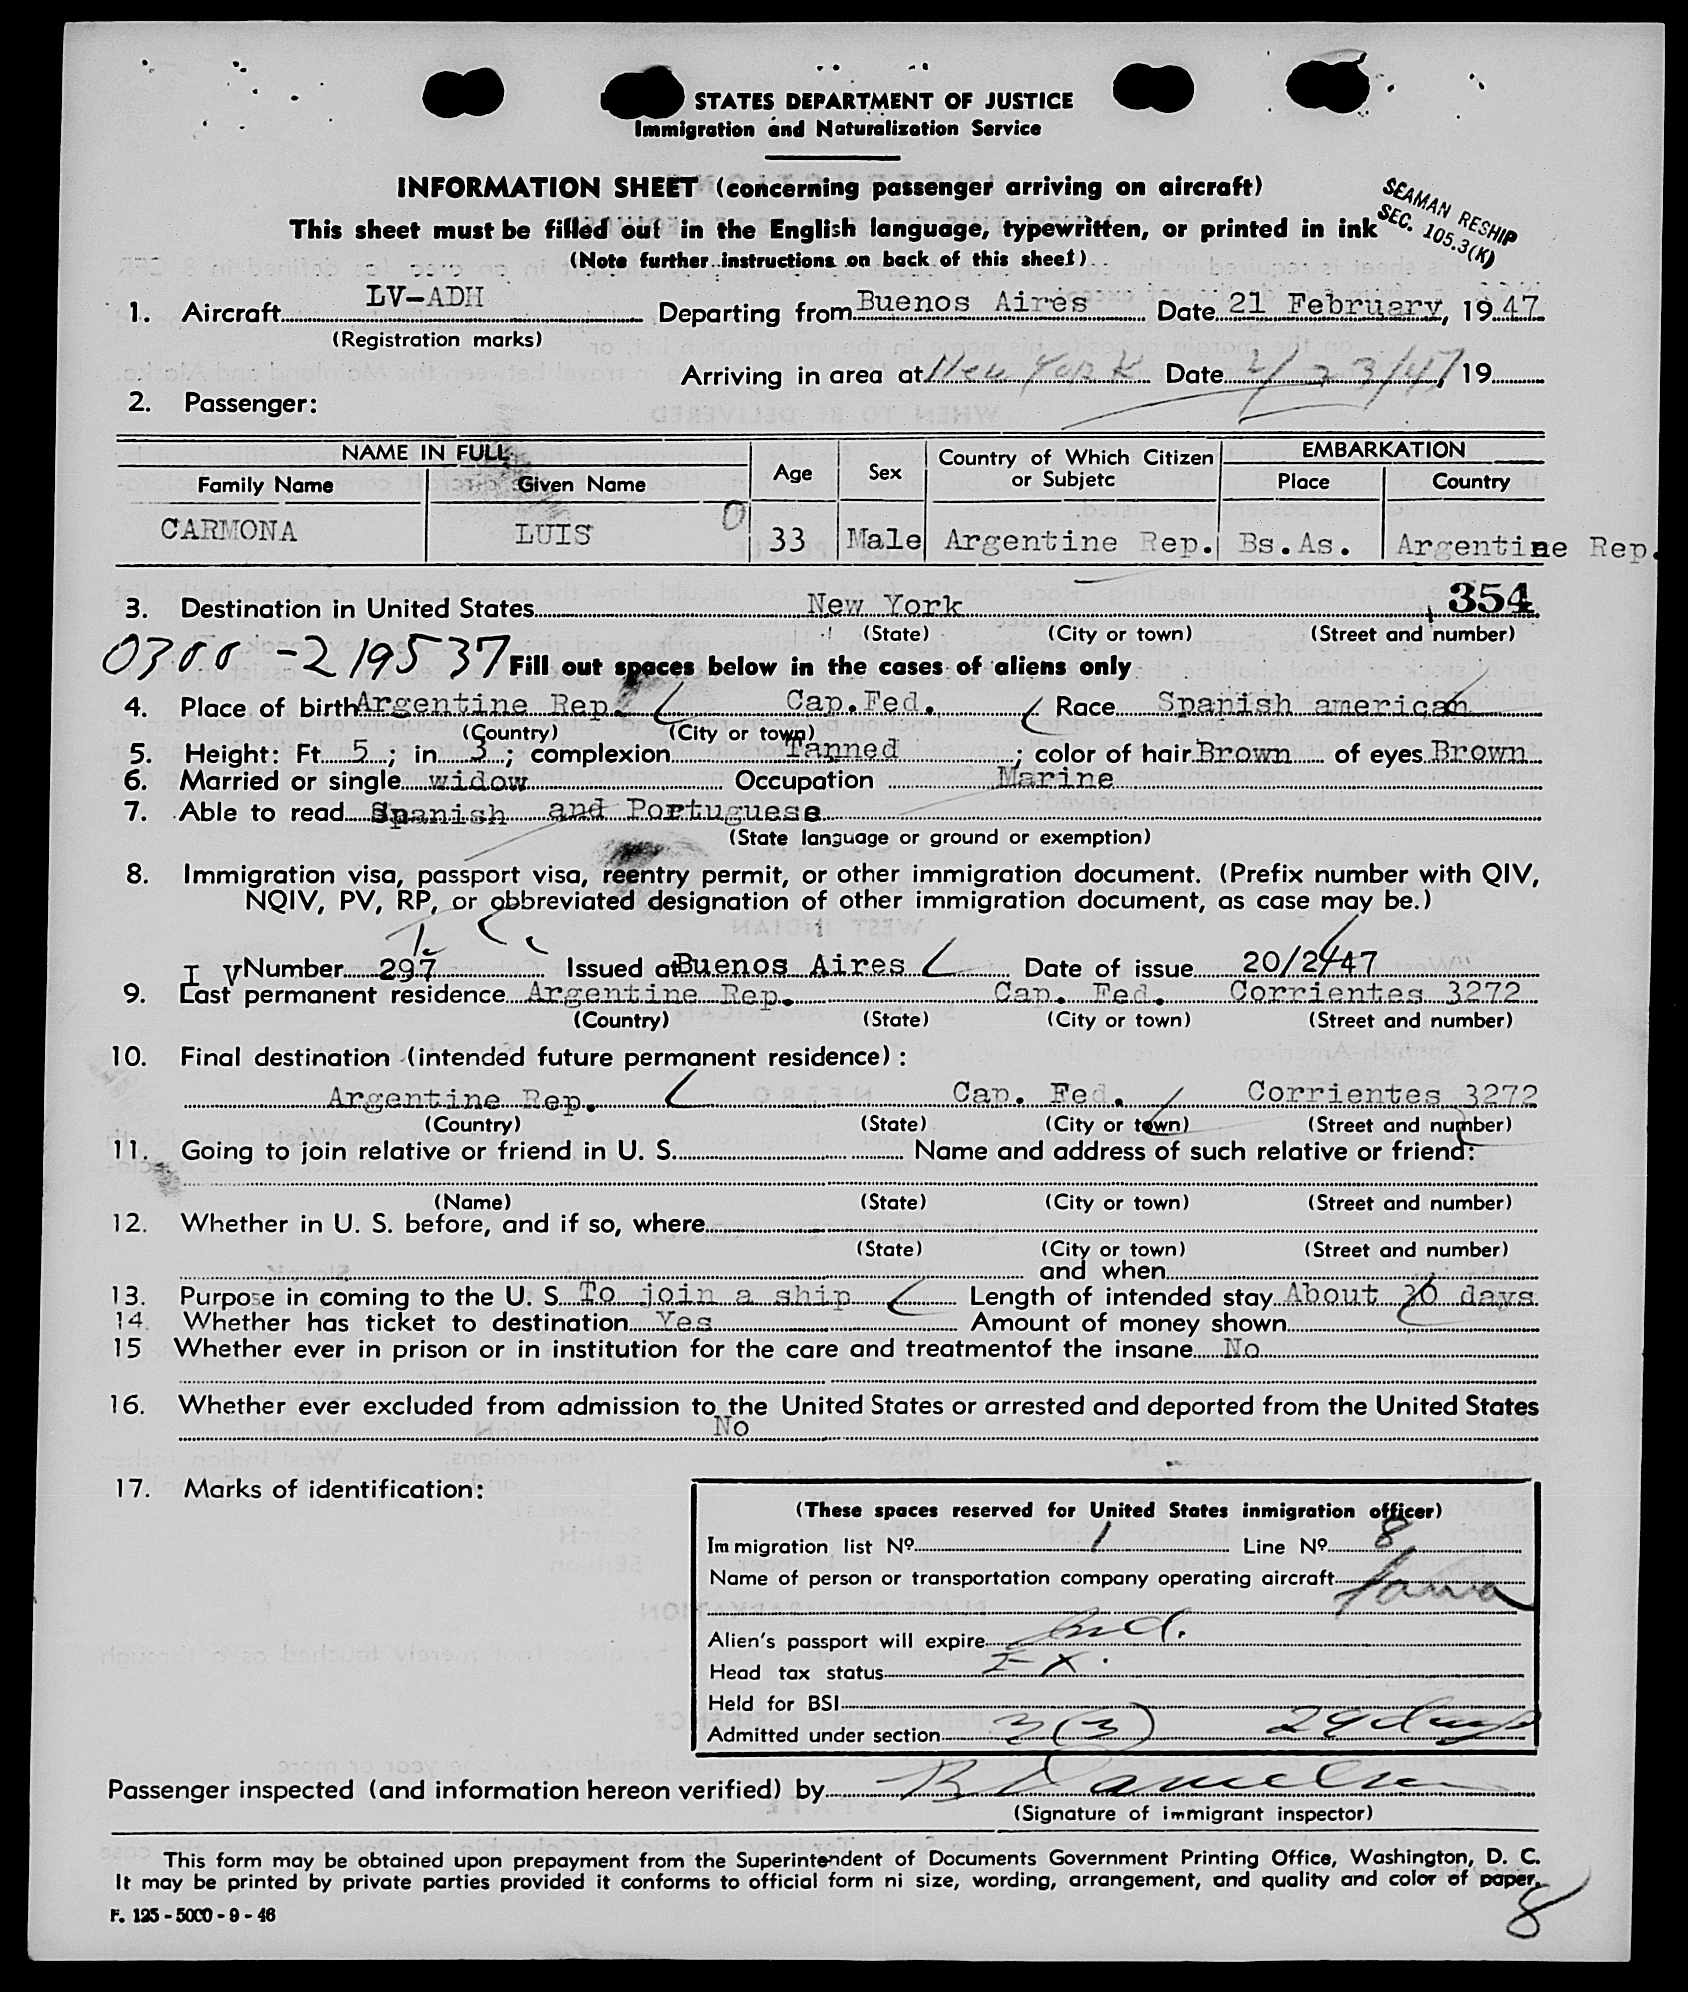 STATES DEPARTMENT OF JUSTICE
Immigration and Naturalization Service
INFORMATION SHEET (concerning passenger arriving on aircraft)
This sheet must be filled out in the English language, typewritten, or printed in ink
SEAMAN RESHIP
SEC. 105.3(K)
(Note further instructions on back of this sheet)
1. Aircraft LV-ADH Departing from Buenos Aires Date 21 February, 1947
(Registration marks)
Arriving in area at New York Date 2/23/47 19
2. Passenger:
NAME IN FULL Age Sex Country of Which Citizen or Subjetc EMBARKATION
Family Name Given Name Place Country
CARMONA LUIS 0 33 Male Argentine Rep. Bs.As. Argentine Rep.
3. Destination in United States New York 354
(State) (City or town) (Street and number)
0300 - 219537 Fill out spaces below in the cases of aliens only
4. Place of birth Argentine Rep. Cap.Fed. Race Spanish american
(Country) (City or town)
5. Height: Ft. 5; in. 3; complexion Tanned; color of hair Brown of eyes Brown
6. Married or single widow Occupation Marine
7. Able to read Spanish and Portuguese
(State language or ground or exemption)
8. Immigration visa, passport visa, reentry permit, or other immigration document. (Prefix number with QIV,
NQIV, PV, RP, or abbreviated designation of other immigration document, as case may be.)
I V Number 297 Issued at Buenos Aires Date of issue 20/2/47
9. Last permanent residence Argentine Rep. Cap. Fed. Corrientes 3272
(Country) (State) (City or town) (Street and number)
10. Final destination (intended future permanent residence):
Argentine Rep. Cap. Fed. Corrientes 3272
(Country) (State) (City or town) (Street and number)
11. Going to join relative or friend in U. S. Name and address of such relative or friend:
(Name) (State) (City or town) (Street and number)
12. Whether in U. S. before, and if so, where
(State) (City or town) (Street and number)
and when
13. Purpose in coming to the U. S. To join a ship Length of intended stay About 30 days
14. Whether has ticket to destination Yes Amount of money shown
15 Whether ever in prison or in institution for the care and treatmentof the insane No
16. Whether ever excluded from admission to the United States or arrested and deported from the United States
No
17. Marks of identification:
(These spaces reserved for United States inmigration officer)
Immigration list Nº 1 Line Nº 8
Name of person or transportation company operating aircraft Fama
Alien's passport will expire Ind.
Head tax status EX.
Held for BSI
Admitted under section 3(3) 29 days
Passenger inspected (and information hereon verified) by
(Signature of immigrant inspector)
This form may be obtained upon prepayment from the Superintendent of Documents Government Printing Office, Washington, D. C.
It may be printed by private parties provided it conforms to official form ni size, wording, arrangement, and quality and color of paper.
F. 125 - 5000 - 9 - 46
8